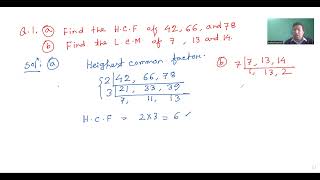 Q.1. (a) Find the H.C.F of 42, 66, and 78
(b) Find the L.C.M of 7, 13 and 14.
Solⁿ. (a) Heighest common factor.
2 | 42, 66, 78
3 | 21, 33, 39
7, 11, 13
H.C.F = 2×3 = 6 ✓
(b) 7 | 7, 13, 14
1, 13, 2